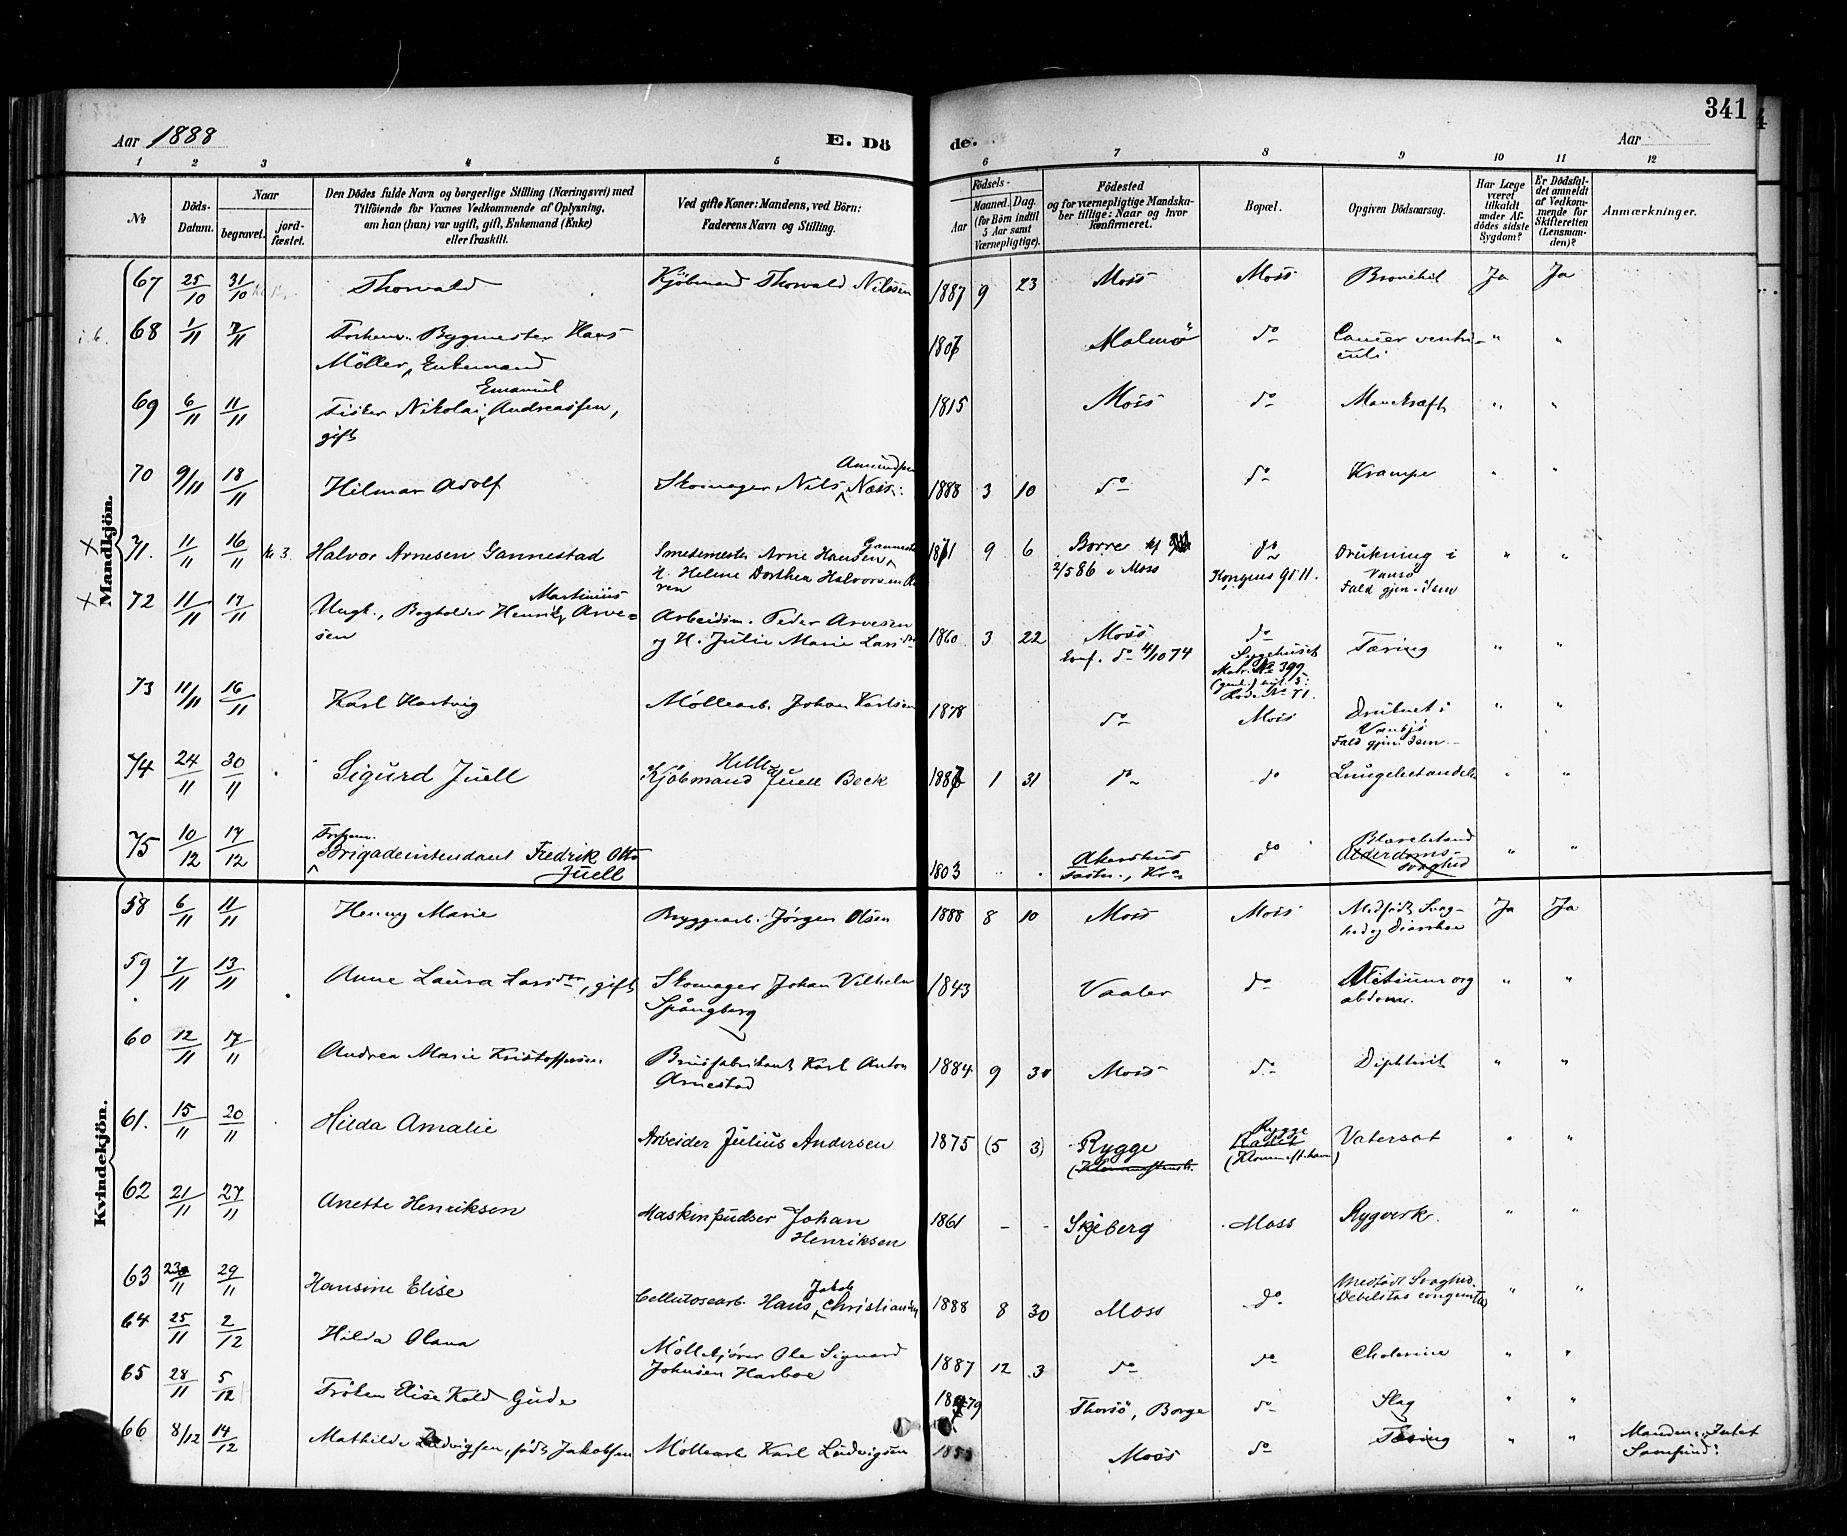 341
Aar 1888
E. Dö
de.
Aar
1 2 3 4 5 6 7 8 9 10 11 12
No
Döds-Datum.
Naar
begravet.
jord-fæstet.
Den Dödes fulde Navn og borgerlige Stilling (Næringsvei) med
Tilföiende for Voxnes Vedkommende af Oplysning,
om han (hun) var ugift, gift, Enkemand (Enke)
eller fraskilt.
Ved gifte Koner: Mandens, ved Börn:
Faderens Navn og Stilling.
Födsels-
Aar
Maaned. Dag.
(for Börn indtil
5 Aar samt
Værnepligtige).
Födested
og for værnepligtige Mandska-
ber tillige: Naar og hvor
konfirmeret.
Bopæl.
Opgiven Dödsaarsag.
Har Læge
været
tilkaldt
under Af-
dödes sidste
Sygdom?
Er Dödsfal-
det anmeldt
af Vedkom-
mende for
Skifteretten
(Lensman-
den)?
Anmærkninger.
Mandkjön.
67 25/10 31/10 Thorvald Kjöbmand Thorvald Nilssen 1887 9 23 Moss Moss Bronchit Ja Ja
68 1/11 7/11 Forhenv. Bygmester Hans 1807 Malmö do Cancer ventri- " "
Möller, Enkemand culi
69 6/11 11/11 Fisker Nikolai Emanuel Andreassen, 1815 Moss do Marekræft " "
gift
70 9/11 18/11 Hilmar Adolf Skomager Nils Amundsen Næss 1888 3 10 do do Krampe " "
71. 11/11 16/11 Kl 3. Halvor Arnesen Gannestad Smedemester Arne Hansen Gannestad 1871 9 6 Borre do Drukning i " "
H. Helene Dorthea Halvorsen 2/5 86 i Moss Kongens Gt 11. Vansø
Fald gjen. Isen
72 11/11 17/11 Ungk., Bogholder Henrik Martinius Arve- Arbeidsm. Peder Arvesen 1860 3 22 Moss do Tæring " "
sen og H. Julie Marie Larsdr Conf. do 4/10 74 Sygehuset
Matr. No 399
Rode No 71.
73 11/11 16/11 Karl Hartvig Møllearb. Johan Karlsen 1878 do Moss Druknet i " "
Vansjø
Fald gjen. Isen
74 24/11 30/11 Sigurd Juell Kjöbmand Helle Juell Beck 1887 1 31 do do Lungebetændelse " "
75 10/12 17/12 Forhenv. Brigadeintendant Fredrik Otto 1803 Akershus do Blærebetænd " "
Juell Fæstn., Kra Alderdoms-
svaghed
Kvindekjön.
58 6/11 11/11 Henny Marie Bryggearb. Jörgen Olsen 1888 8 10 Moss Moss Medfödt Svag- Ja Ja
hed og Diarrhoe
59 7/11 13/11 Anne Laura Larsdtr, gift Skomager Johan Vilhelm 1843 Vaaler do Vitium org " "
Spångberg abdom.
60 12/11 17/11 Andrea Marie Kristoffersen Brusfabrikant Karl Anton 1884 9 30 Moss do Diphterit " "
Arnestad
61. 15/11 20/11 Hilda Amalie Arbeider Julius Andersen 1875 (5 3) Rygge Rygge Vatersot " "
62 21/11 27/11 Anette Henriksen Maskinpudser Johan 1861 - - Skjeberg Moss Rygverk. " "
Henriksen
63 23/11 29/11 Hansine Elise Cellulosearb. Hans Jakob Christiansen 1888 8 30 Moss do Medfödt Svaghed. " "
(Debilitas congenita)
64 25/11 2/12 Hilda Olava Möllekjörer Ole Sigvard 1887 12 3 do do Cholerine " "
Johnsen Harboe
65 28/11 5/12 Fröken Elise Kold Gude 79 Thorsö, Borge do Slag " "
66 8/12 14/12 Mathilde Ludvigsen, född Jakobsen Møllearb Karl Ludvigsen Moss do Tæring " " Manden: Intet
Samfund: